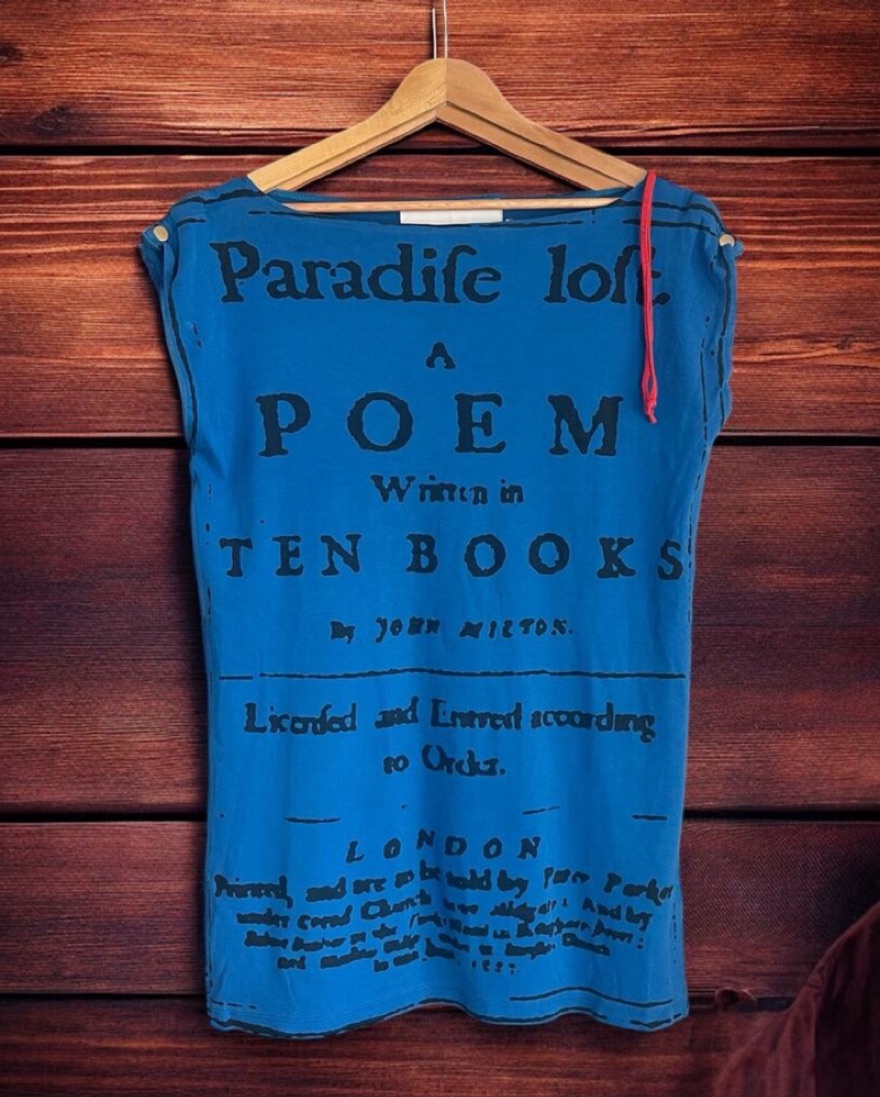 Paradiſe loſt.
A
POEM
Written in
TEN BOOKS
By JOHN MILTON.
Licenſed and Entred according
to Order.
LONDON
Printed, and are to be ſold by Peter Parker
under Creed Church neer Aldgate; And by